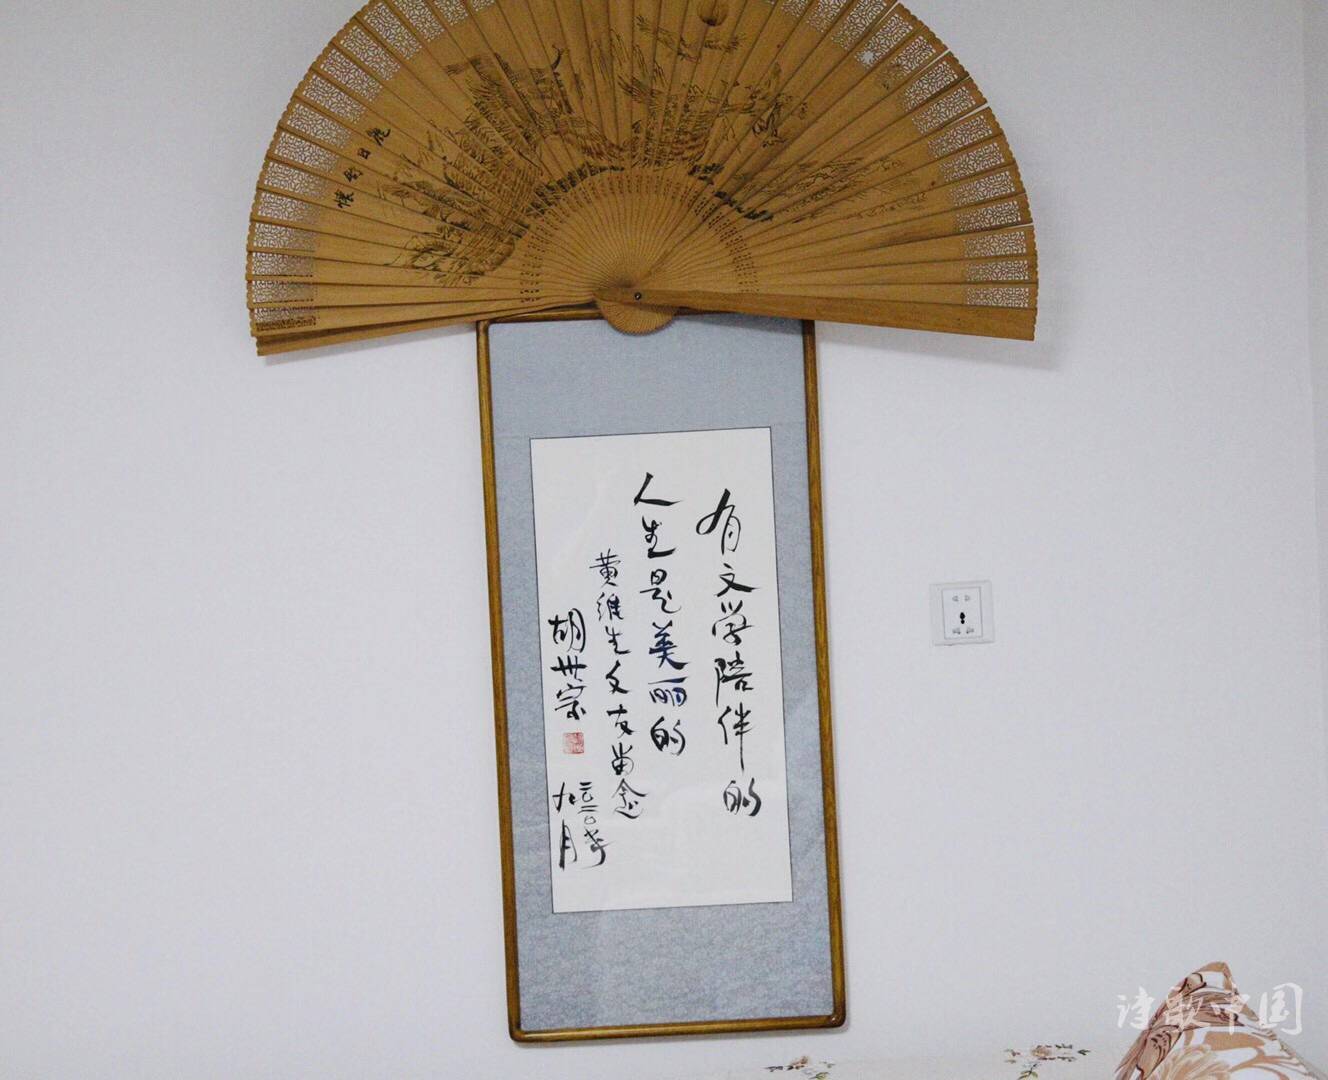 有文学陪伴的
人生是美丽的
黄维生文友留念
胡世宗
二〇二〇年
九月
诗歌中国